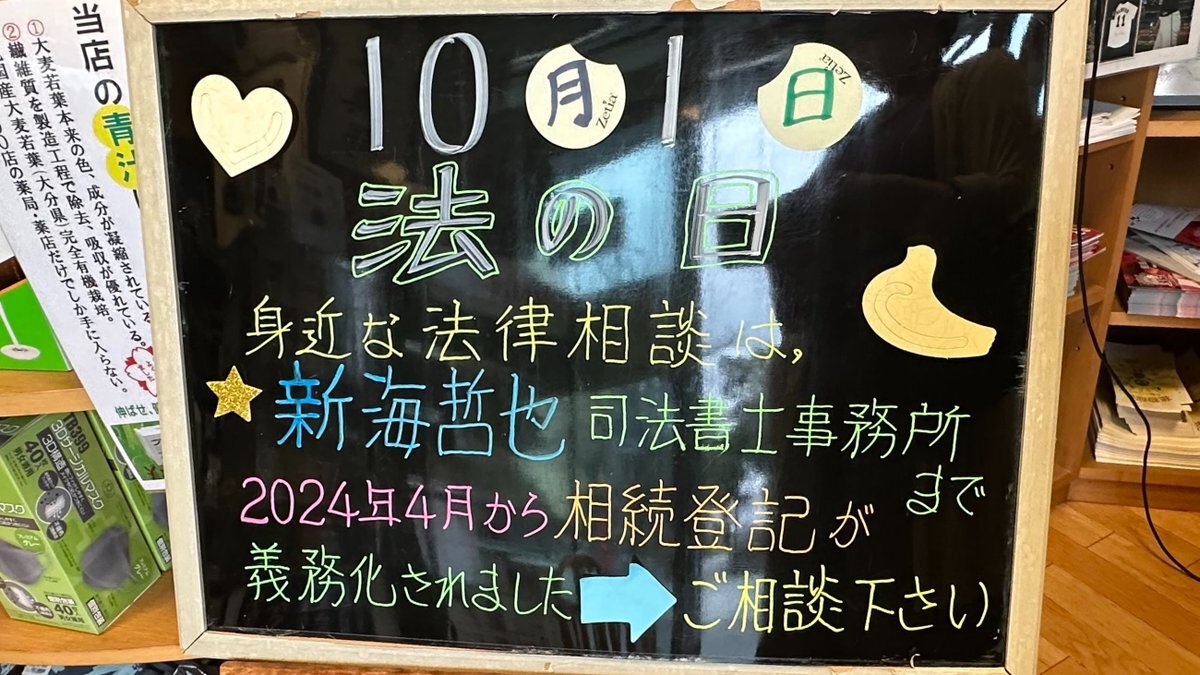 10月1日
Zetia
Zetia
法の日
身近な法律相談は,
新海哲也 司法書士事務所
まで
2024年4月から相続登記が
義務化されました
ご相談下さい
当店の青汁
①大麦若葉本来の色、成分が凝縮されている
②繊維質を製造工程で除去、吸収が優れている。
国産大麦若葉(大分県)完全有機栽培。
店の薬局・薬店だけでしか手に入らない。
伸ばせ、
R399
40入
3D構造
マスク
プレミアム
グレー
40入
11